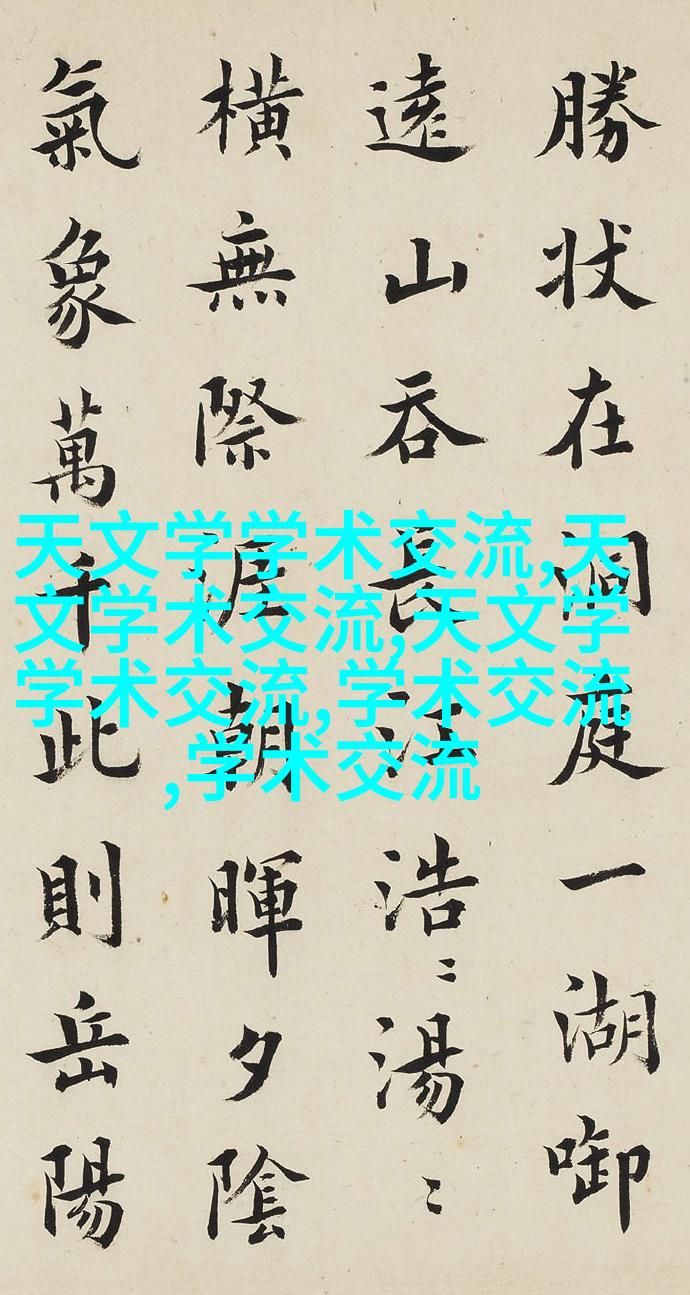 勝状在洞庭一湖啣
遠山吞長江浩〻湯〻
横無際涯朝暉夕陰
氣象萬千此則岳陽
天文学学术交流,天
文学术交流,天文学
学术交流,学术交流
,学术交流